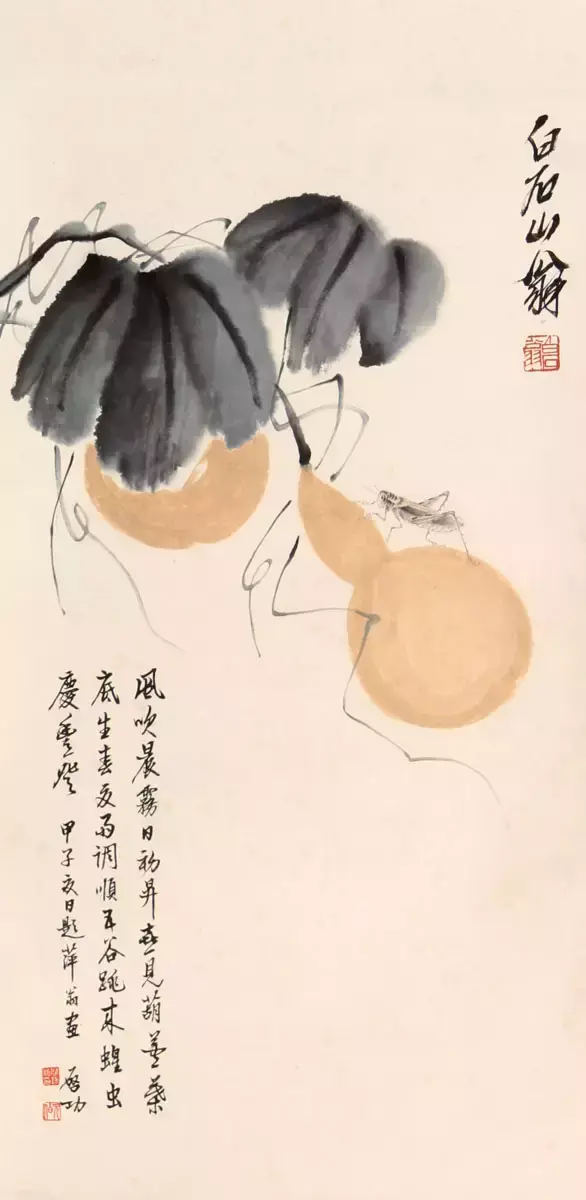 白石山翁
風吹晨霧日初昇喜見葫蘆葉
底生春夏雨调順五谷跳来蝗虫
慶豐登 甲子夏日題萍翁畫 啓功